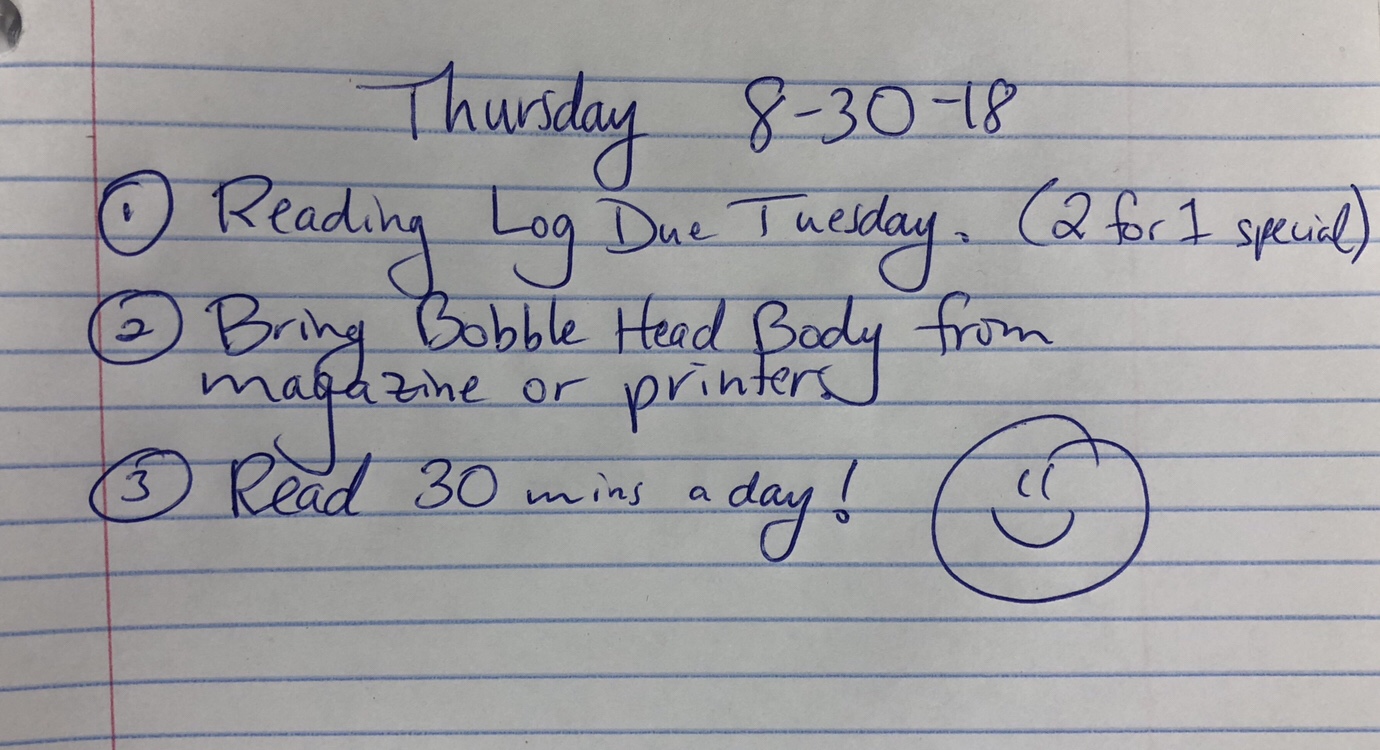 Thursday 8-30-18
① Reading Log Due Tuesday. (2 for 1 special)
② Bring Bobble Head Body from
magazine or printers
③ Read 30 mins a day!